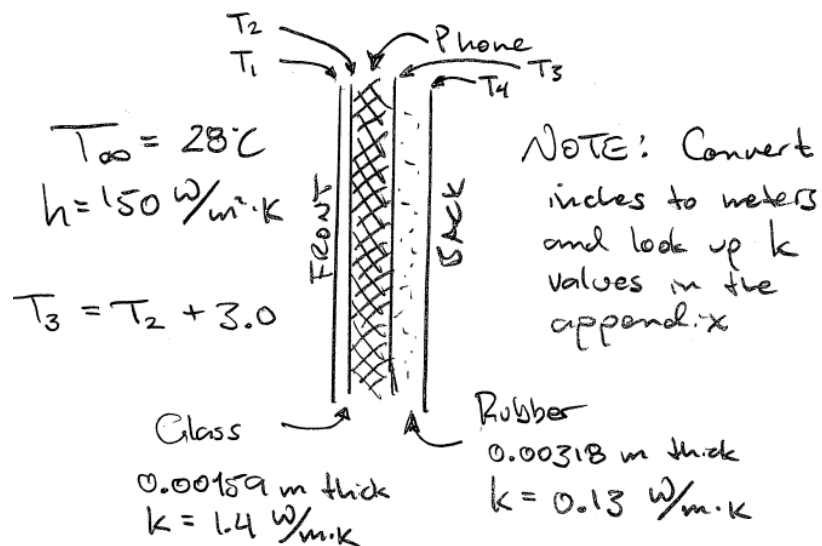 T₂
Phone
T₁
T₃
T₄
T∞ = 28°C
h = 150 W/m²·K
T₃ = T₂ + 3.0
FRONT
BACK
NOTE: Convert
inches to meters
and look up k
values in the
appendix
Glass
0.00159 m thick
k = 1.4 W/m·K
Rubber
0.00318 m thick
k = 0.13 W/m·K